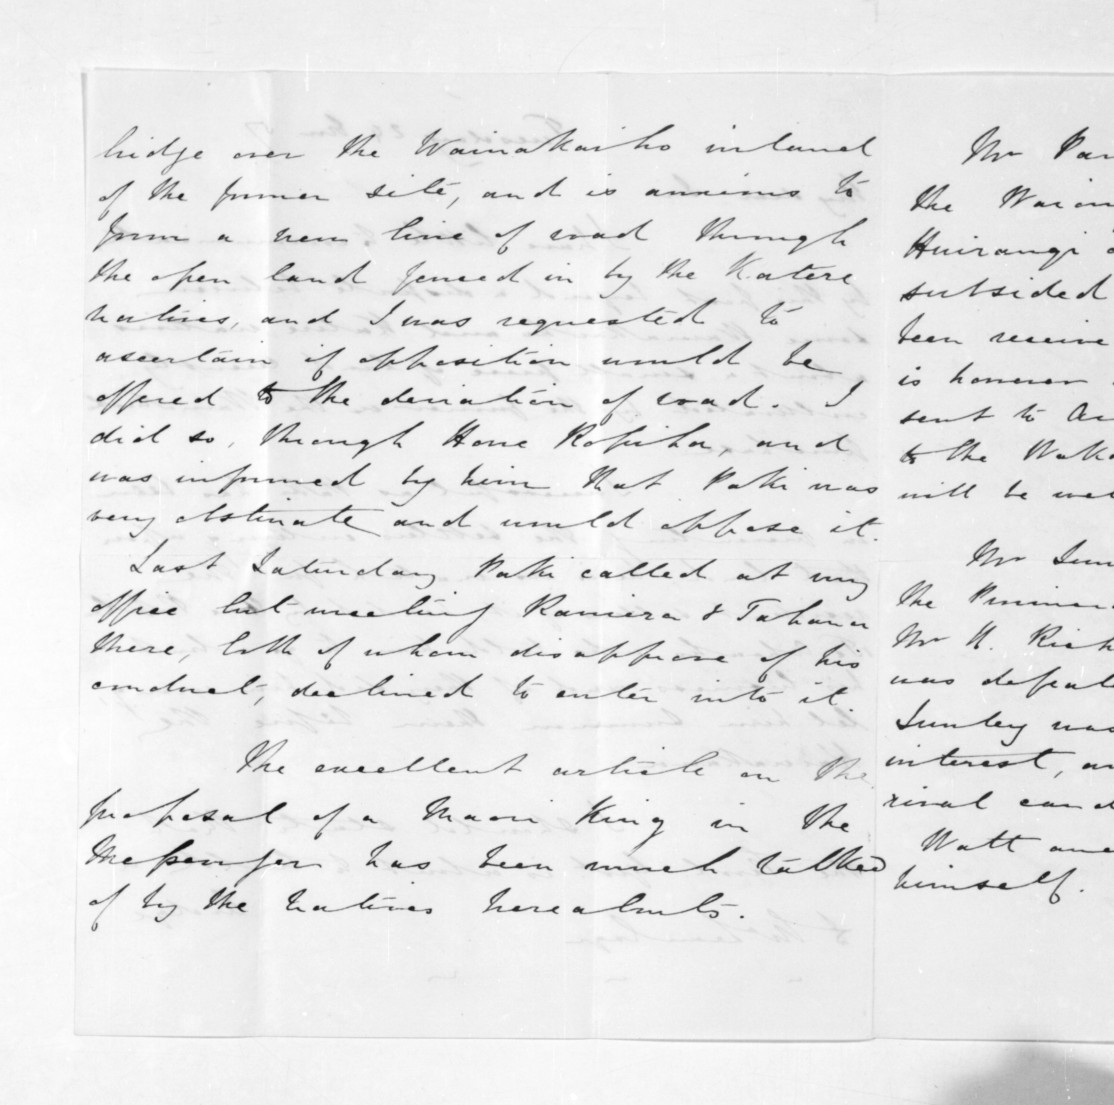 bridge over the Waiwakaiho inland
of the former site, and is anxious to
form a new line of road through
the open land fenced in by the Katere
natives, and I was requested to
ascertain if opposition would be
offered to the deviation of road. I
did so, through Hone Ropiha, and
was informed by him that Paki was
very obstinate and would oppose it.
Last Saturday Paki called at my
office but meeting Raniera & Tahana
there, both of whom disapprove of his
conduct, declined to enter into it.
The excellent article on the
proposal of a Maori King in the
Messenger has been much talked
of by the natives hereabouts.
Mr
the
Huirangi
subsided
been receive
is however
sent to
to the
will be
Mr
the
Mr H. Rich
was defeat
was
interest, an
rival cand
Watt
himself.